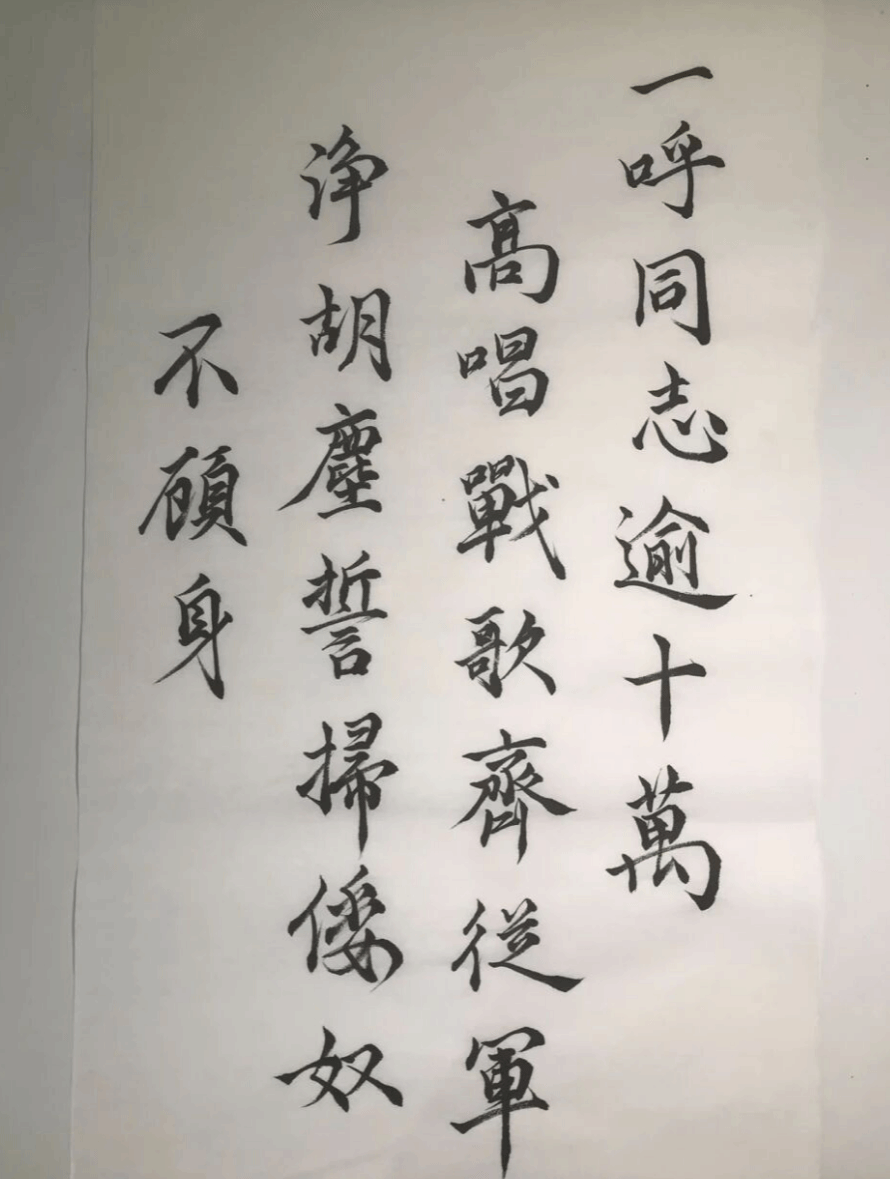 一呼同志逾十萬
高唱戰歌齊從軍
淨胡塵誓掃倭奴
不顧身